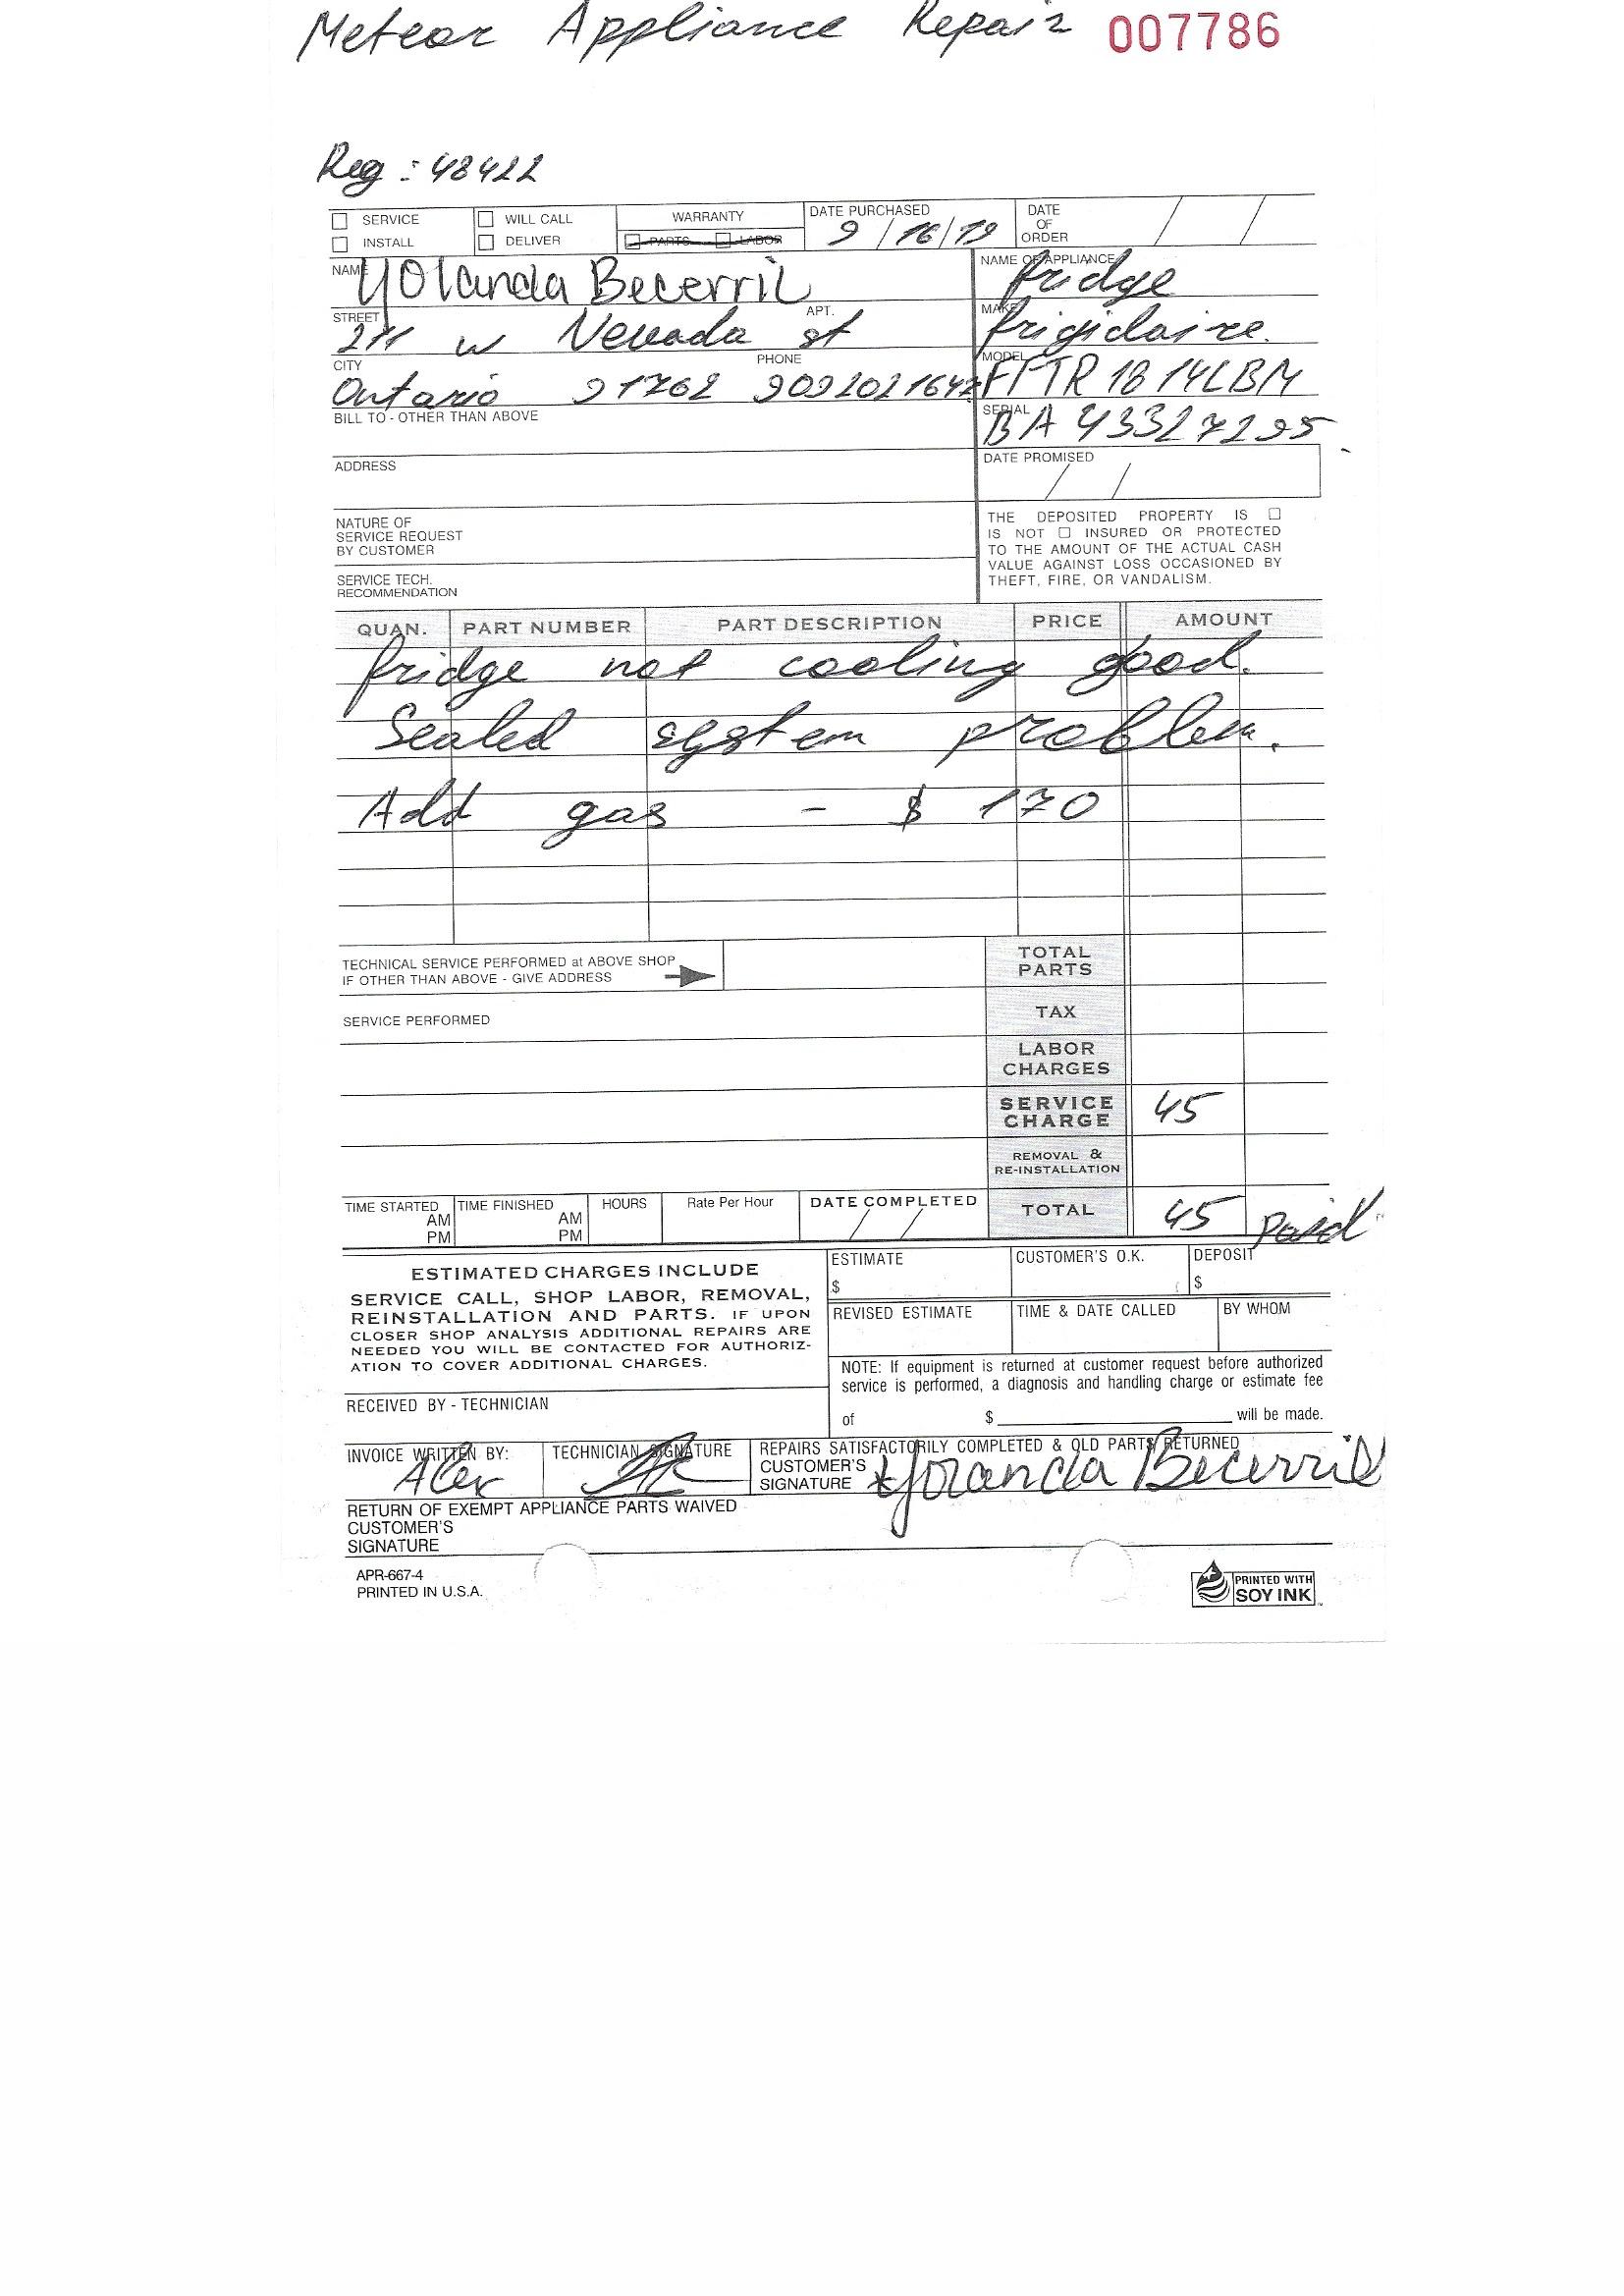 Meteor Appliance Repair 007786
Reg: 48422
SERVICE WILL CALL WARRANTY DATE PURCHASED DATE OF ORDER
INSTALL DELIVER PARTS LABOR 9/16/19
NAME Yolanda Becerril NAME OF APPLIANCE fridge
STREET 211 w Nevada st APT. MAKE frigidaire.
CITY Ontario 91762 PHONE 9092021647 MODEL FFTR1814LBM
BILL TO - OTHER THAN ABOVE SERIAL BA43327295
ADDRESS DATE PROMISED / /
NATURE OF
SERVICE REQUEST
BY CUSTOMER
SERVICE TECH.
RECOMMENDATION
THE DEPOSITED PROPERTY IS
IS NOT INSURED OR PROTECTED
TO THE AMOUNT OF THE ACTUAL CASH
VALUE AGAINST LOSS OCCASIONED BY
THEFT, FIRE, OR VANDALISM.
QUAN. PART NUMBER PART DESCRIPTION PRICE AMOUNT
fridge not cooling good.
Sealed system problem.
Add gas - $ 170
TECHNICAL SERVICE PERFORMED at ABOVE SHOP
IF OTHER THAN ABOVE - GIVE ADDRESS
TOTAL PARTS
SERVICE PERFORMED
TAX
LABOR CHARGES
SERVICE CHARGE 45
REMOVAL & RE-INSTALLATION
TIME STARTED AM PM TIME FINISHED AM PM HOURS Rate Per Hour DATE COMPLETED / / TOTAL 45 paid
ESTIMATED CHARGES INCLUDE
SERVICE CALL, SHOP LABOR, REMOVAL,
REINSTALLATION AND PARTS. IF UPON
CLOSER SHOP ANALYSIS ADDITIONAL REPAIRS ARE
NEEDED YOU WILL BE CONTACTED FOR AUTHORIZ-
ATION TO COVER ADDITIONAL CHARGES.
ESTIMATE $ CUSTOMER'S O.K. DEPOSIT $
REVISED ESTIMATE TIME & DATE CALLED BY WHOM
NOTE: If equipment is returned at customer request before authorized
service is performed, a diagnosis and handling charge or estimate fee
of $ will be made.
RECEIVED BY - TECHNICIAN
INVOICE WRITTEN BY: Alex TECHNICIAN SIGNATURE
REPAIRS SATISFACTORILY COMPLETED & OLD PARTS RETURNED
CUSTOMER'S
SIGNATURE Yolanda Becerril
RETURN OF EXEMPT APPLIANCE PARTS WAIVED
CUSTOMER'S
SIGNATURE
APR-667-4
PRINTED IN U.S.A.
PRINTED WITH
SOY INK